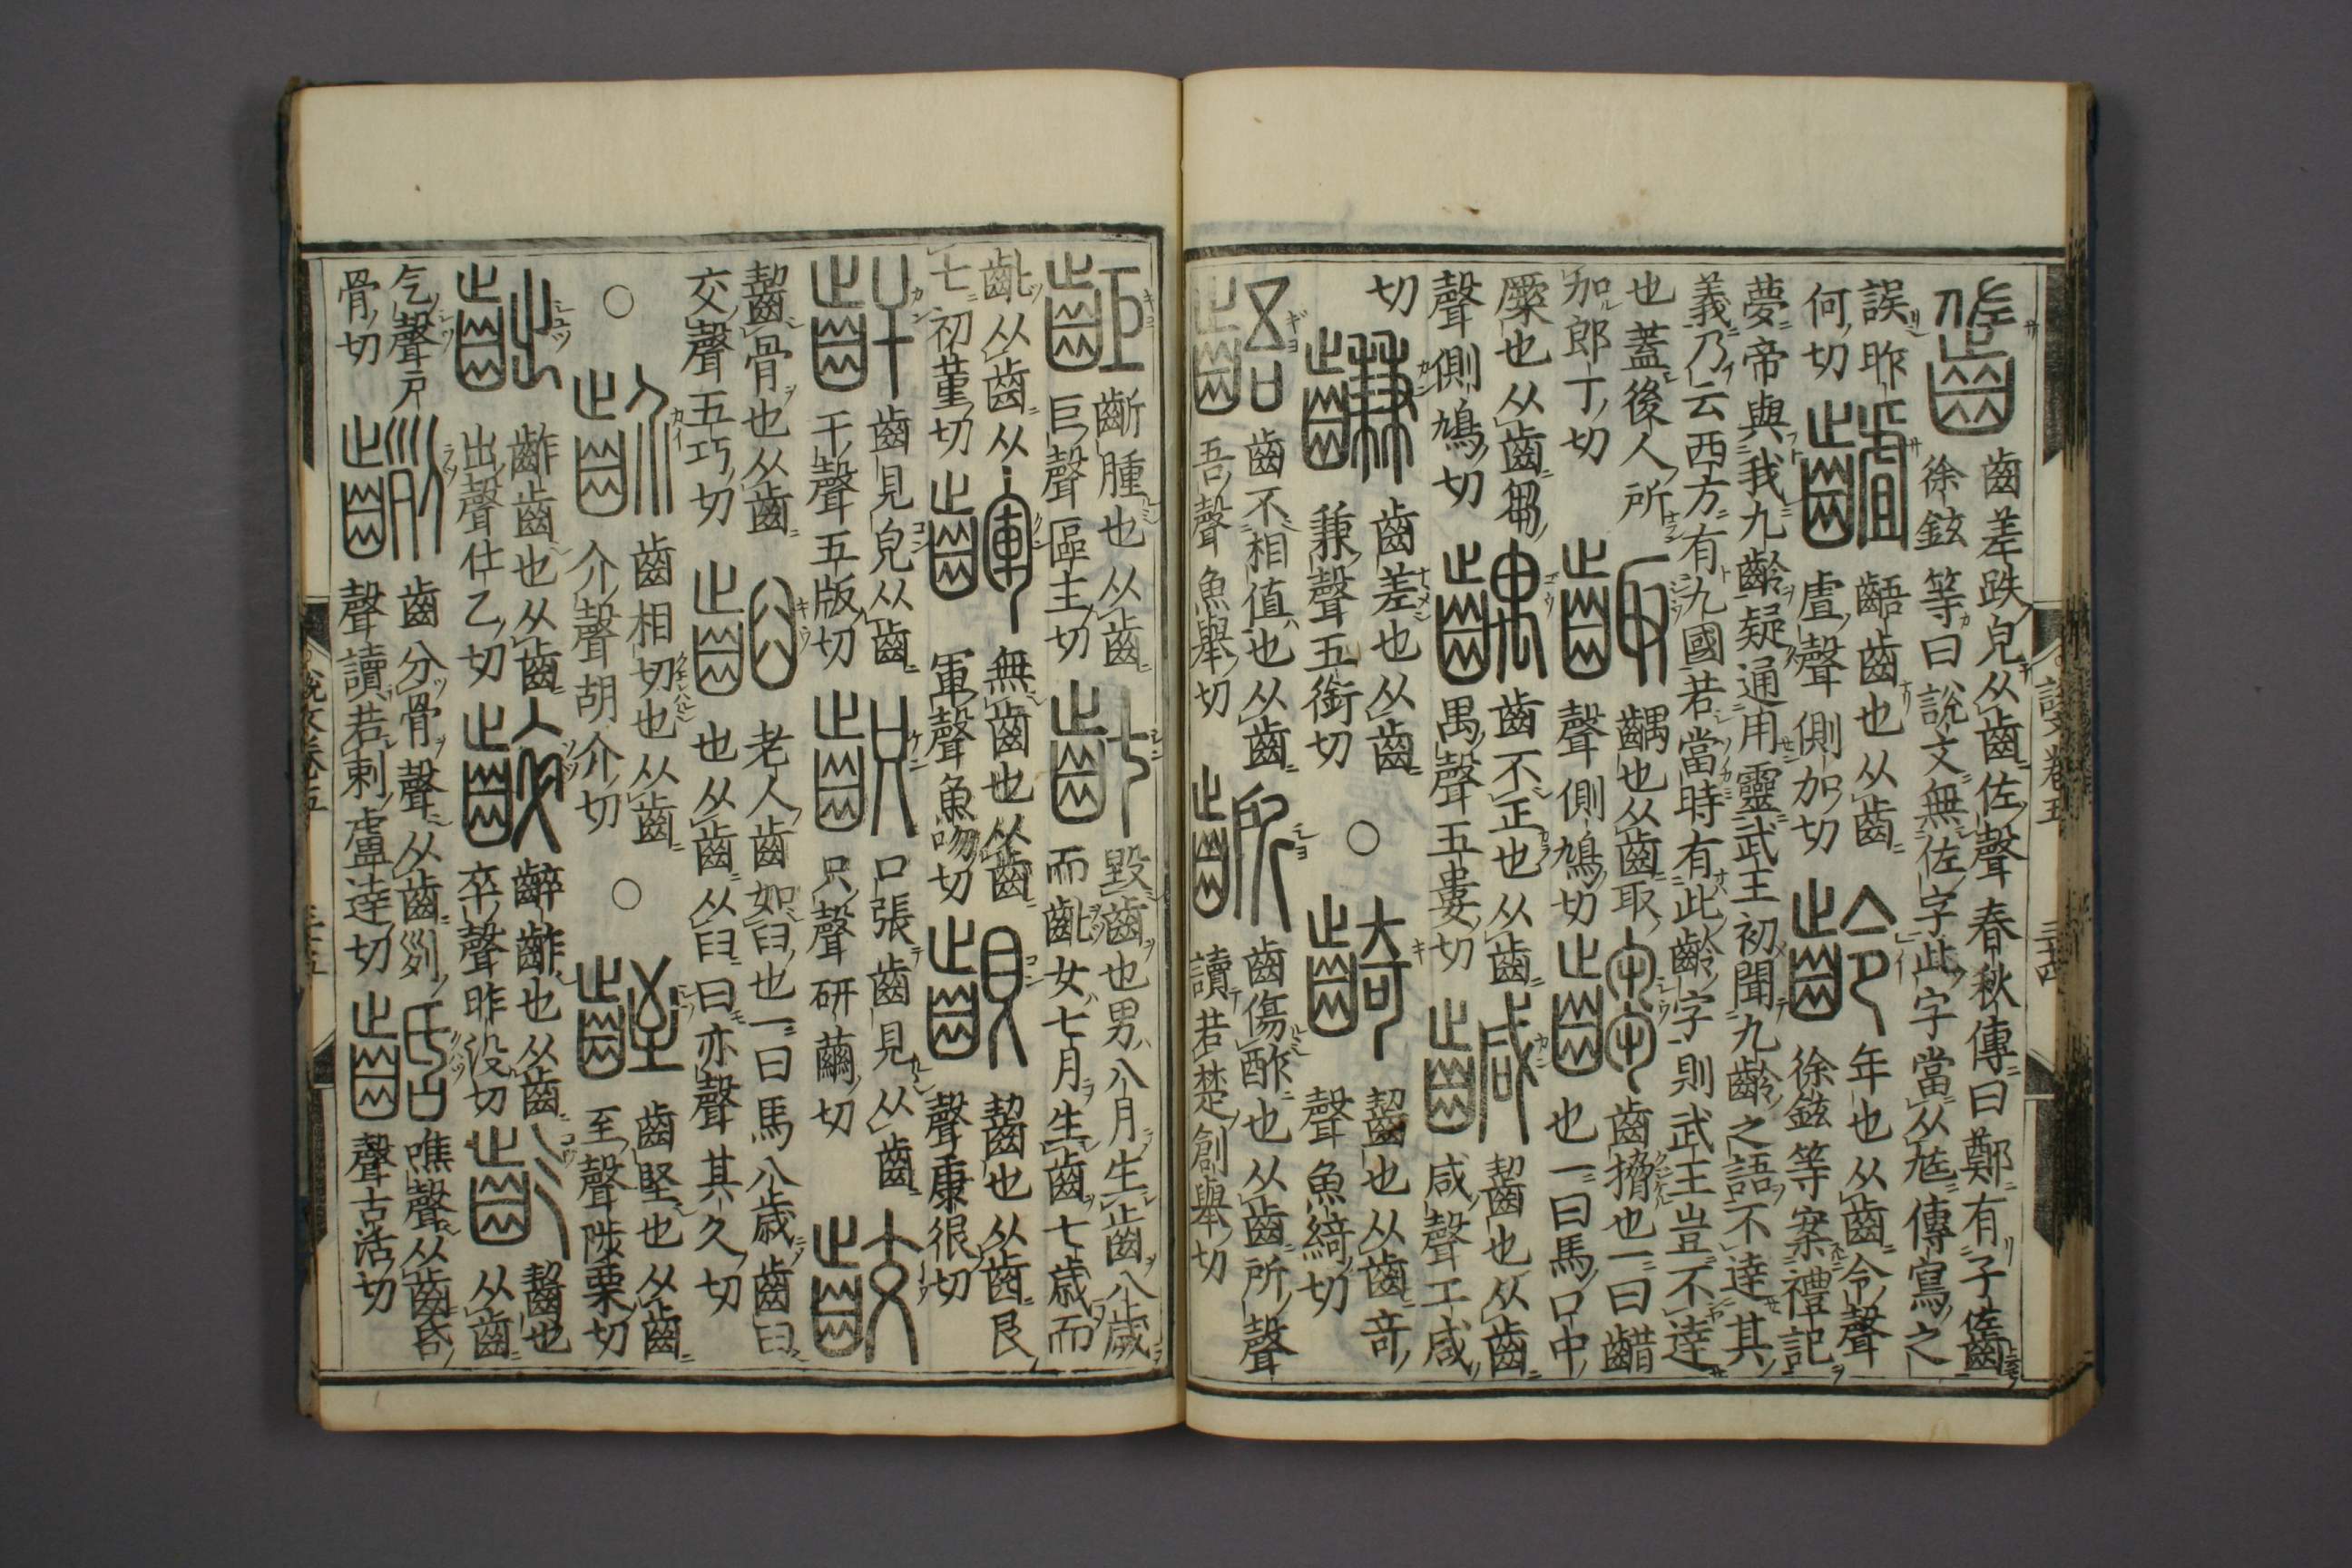 齒差跌皃从齒佐聲春秋傳曰鄭有子佐齒
徐鉉等曰說文無佐字此字當从㝾傳寫之
誤昨
何切
齬齒也从齒
虘聲側加切
齡
年也从齒令聲
徐鉉等案禮記
夢帝與我九齡疑通用靈武王初聞九齡之語不達其
義乃云西方有九國若當時有此齡字則武王豈不達
也蓋後人所
加郎丁切
齱
齵也从齒取
聲側鳩切
齺
齒搚也一曰齰
也一曰馬口中
也从齒芻
聲側鳩切
齵
齒不正也从齒
禺聲五婁切
齧也从齒
咸聲工咸
切
齒差也从齒
兼聲五銜切
○
齮
齧也从齒奇
聲魚綺切
齬
齒不相值也从齒
吾聲魚舉切
齭
齒傷酢也从齒所聲
讀若楚創舉切
說文卷五 三十四
齗腫也从齒
巨聲區主切
齔
毀齒也男八月生齒八歲
而齔女七月生齒七歲而
齔从齒从
七初菫切
齳
無齒也从齒
軍聲魚吻切
齦
齧也从齒艮
聲康很切
齒見皃从齒
干聲五版切
齞
口張齒見从齒
只聲研繭切
齩
齧骨也从齒
交聲五巧切
齨
老人齒如臼也一曰馬八歲齒臼
也从齒从臼曰亦聲其久切
○
齘
齒相切也从齒
介聲胡介切
○
齒堅也从齒
至聲陟栗切
齚齒也从齒
出聲仕乙切
齚也从齒
卒聲昨沒切
齕
齧也
从齒
气聲戶
骨切
齒分骨聲从齒
聲讀若剌盧達切
噍聲从齒昏
聲古活切
說文卷五 三十五